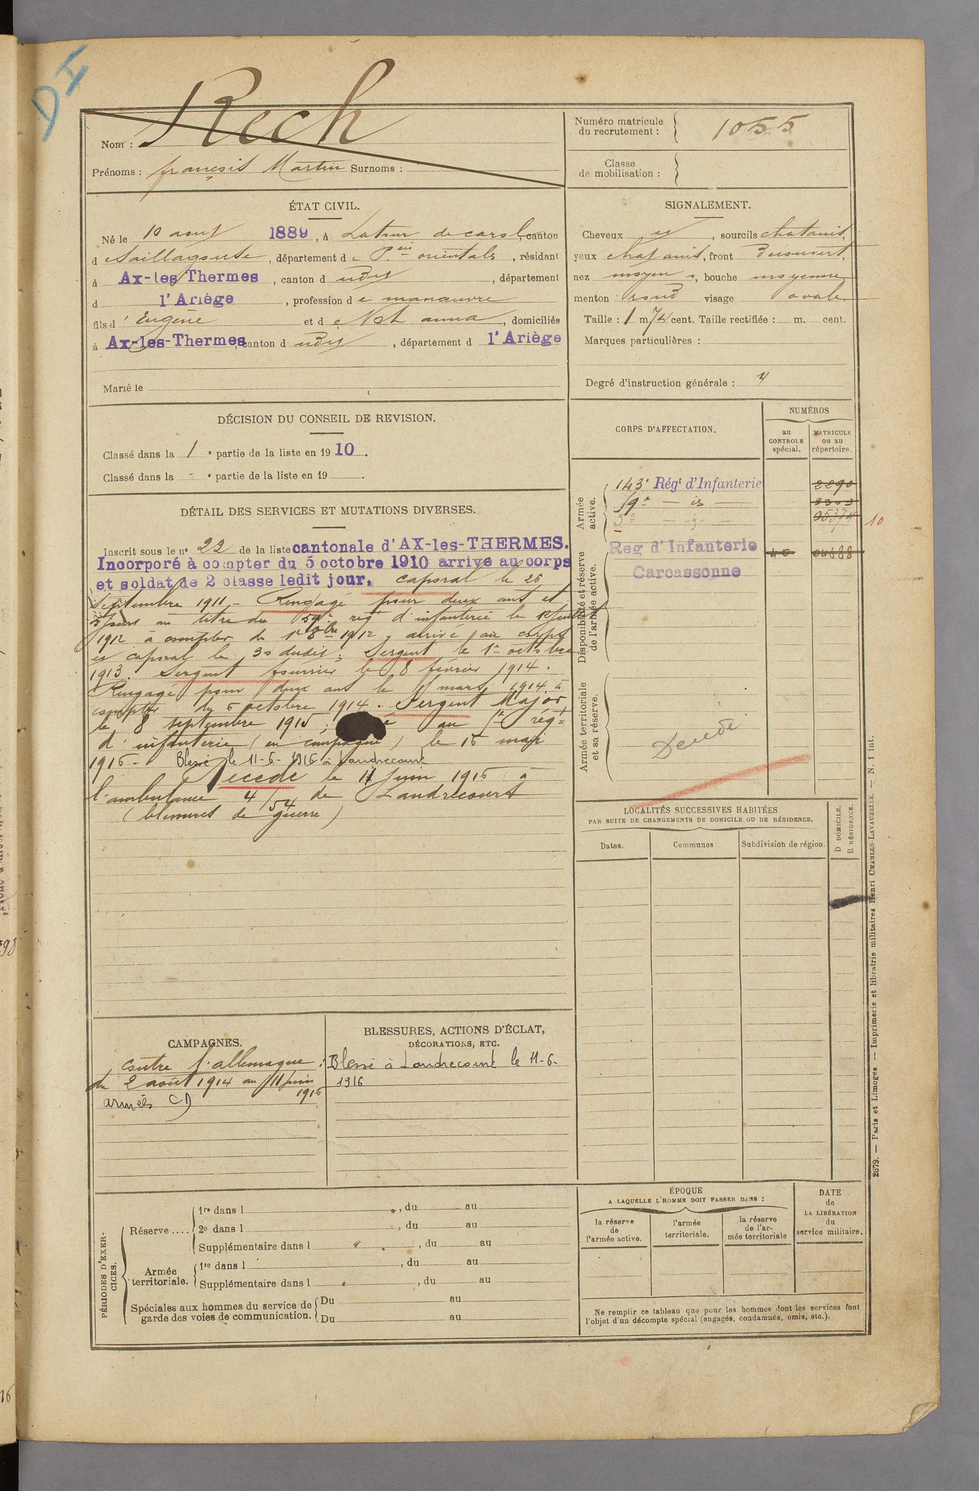 DI
Nom : Rech
Prénoms : françois Martin Surnoms :
Numéro matricule du recrutement : 1055
Classe de mobilisation :
ÉTAT CIVIL.
Né le 10 aout 1889, à Latour de carol, canton
d Saillagouse, département d es P.ées orientales, résidant
à Ax-les Thermes, canton d udit, département
d l'Ariège, profession d e manœuvre
fils d' Eugène et d e anna, domiciliés
à Ax-les-Thermes, canton d udit, département d l'Ariège
Marié le
SIGNALEMENT.
Cheveux , sourcils chatains,
yeux chatains, front Découvert,
nez moyen, bouche moyenne,
menton rond visage ovale
Taille : 1 m 74 cent. Taille rectifiée : m. cent.
Marques particulières :
Degré d'instruction générale : 4
DÉCISION DU CONSEIL DE REVISION.
Classé dans la 1 e partie de la liste en 1910.
Classé dans la - e partie de la liste en 19
DÉTAIL DES SERVICES ET MUTATIONS DIVERSES.
Inscrit sous le n° 22 de la liste cantonale d'AX-les-THERMES.
Incorporé à compter du 5 octobre 1910 arrivé au corps
et soldat de 2 classe ledit jour. caporal le 26
Septembre 1911. Rengagé pour deux ans et
jours au titre du 59e rég d'infanterie le
1912 à compter de 1er 8bre 1912, arrivé au corps
et caporal le 30 dudit; Sergent le 1er octobre
1913. Sergent fourrier le 8 février 1914.
Rengagé pour deux ans le mars 1914 à
compter du 5 octobre 1914. Sergent Major
le 8 septembre 1915; au 7e rég.t
d'infanterie (en campagne) le 15 mai
1916. Blessé le 11-6-1916 à Landrecourt
Décédé le 11 Juin 1916 à
l'ambulance 4/54 de Landrecourt
(blessures de guerre)
CORPS D'AFFECTATION.
NUMÉROS
au CONTROLE spécial.
MATRICULE ou au répertoire.
Armée active.
143e Rég.t d'Infanterie
59e - id -
10
Disponibilité et réserve de l'armée active.
Reg d'Infanterie
Carcassonne
Armée territoriale et sa réserve.
Décédé
LOCALITÉS SUCCESSIVES HABITÉES
PAR SUITE DE CHANGEMENTS DE DOMICILE OU DE RÉSIDENCE.
Dates. Communes Subdivision de région.
D DOMICILE.
R RÉSIDENCE.
CAMPAGNES.
contre l'allemagne
du 2 août 1914 au 11 juin
1916
armées (D)
BLESSURES, ACTIONS D'ÉCLAT,
DÉCORATIONS, ETC.
Blessé à Landrecourt le 11-6-
1916
PÉRIODES D'EXERCICES.
Réserve....
1re dans l , du au
2e dans l , du au
Supplémentaire dans l , du au
Armée territoriale.
1re dans l , du au
Supplémentaire dans l , du au
Spéciales aux hommes du service de garde des voies de communication.
Du au
Du au
ÉPOQUE
A LAQUELLE L'HOMME DOIT PASSER DANS :
la réserve de l'armée active.
l'armée territoriale.
la réserve de l'armée territoriale
DATE de LA LIBÉRATION du service militaire.
Ne remplir ce tableau que pour les hommes dont les services font
l'objet d'un décompte spécial (engagés, condamnés, omis, etc.).
2679. — Paris et Limoges. — Imprimerie et librairie militaires Henri CHARLES-LAVAUZELLE. — N. 1 int.